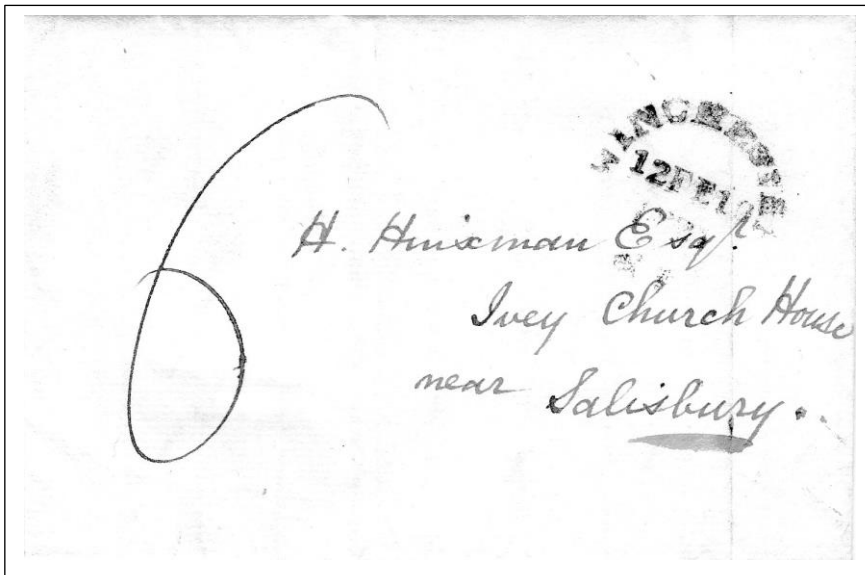 6
WINCHESTER
12FE18
H. Huixman Esqr.
Ivey Church House
near Salisbury.